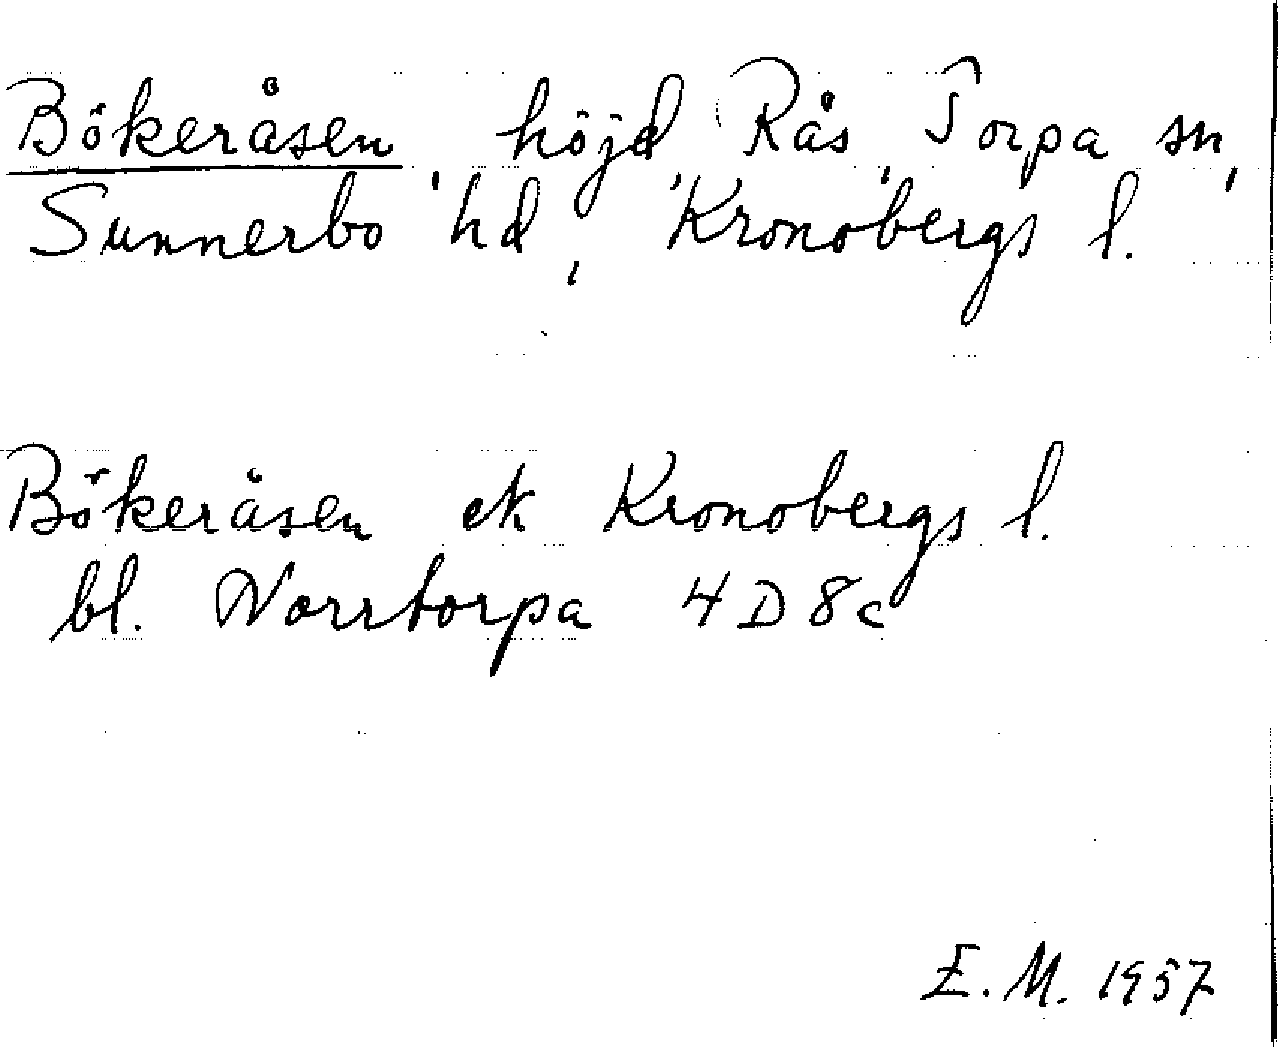 Bökeråsen, höjd, Rås, Torpa sn,
Sunnerbo hd, Kronobergs l.
Bökeråsen ek Kronobergs l.
bl. Norrtorpa 4D8c
E.M. 1957